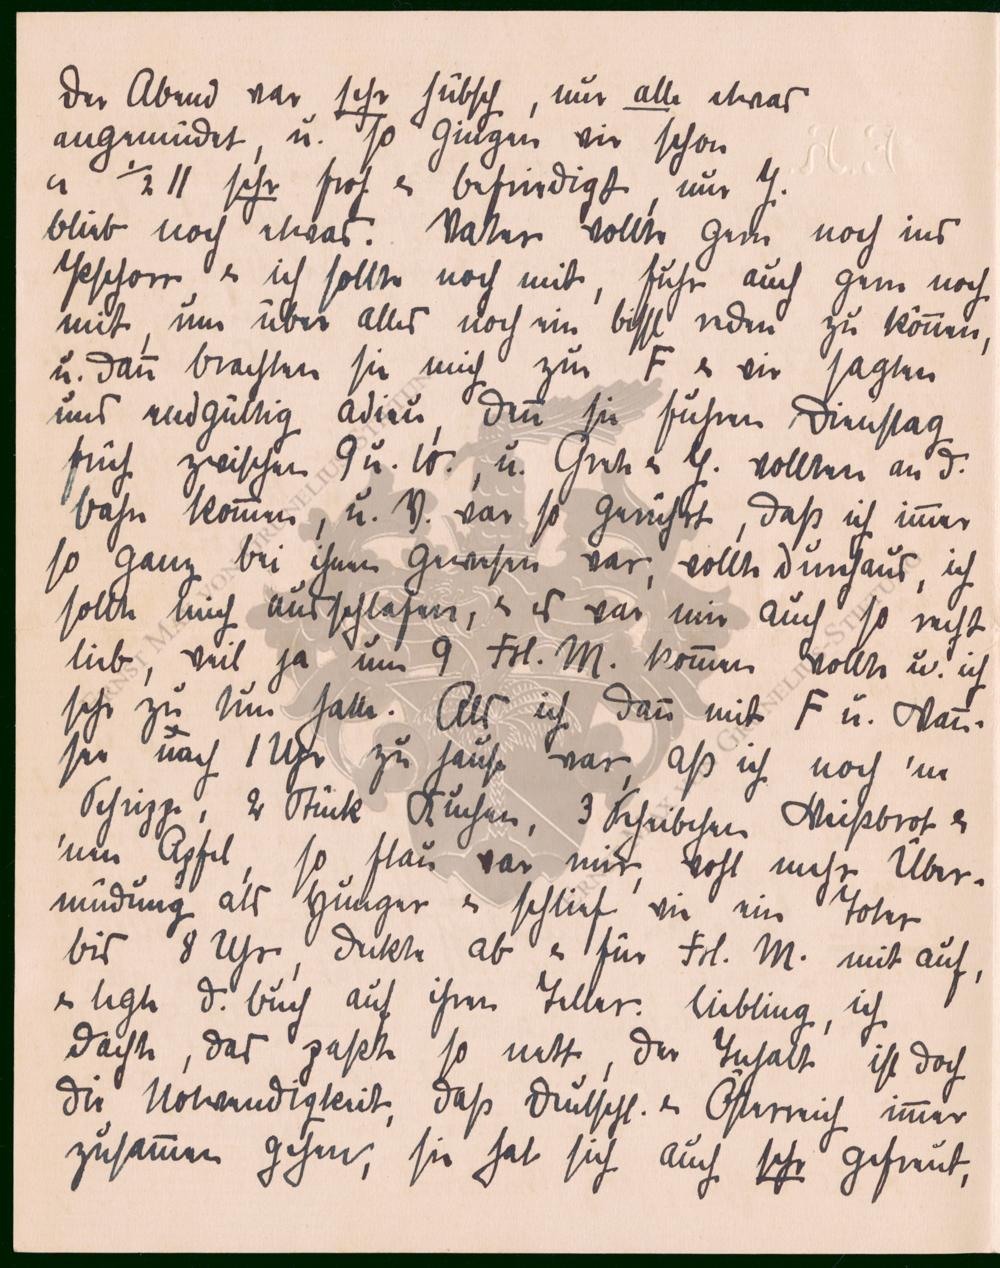 Der Abend war sehr hübsch, nur alle etwas
angemüdet, u. so gingen wir schon
a ½ 11 sehr froh & befriedigt, nur Y.
blieb noch etwas. Vater wollte gern noch ins
Pschorr & ich sollte noch mit, fuhr auch gern noch
mit, um über alles noch ein bissl reden zu kön̄en,
u. dan̄ brachten sie mich zur F & wir sagten
uns endgültig adieu, den̄ sie fuhren Dienstag
früh zwischen 9 u. 10., u. Grete & Y. wollten an d.
bahn kom̄en, u. V. war so gerührt, daß ich im̄er
so ganz bei ihnen gewesen war, wollte durchaus, ich
sollte mich ausschlafen, & es war mir auch so recht
lieb, weil ja um 9 Frl. M. kom̄en wollte u. ich
sehr zu tun hatte. Als ich dan̄ mit F u. Wan̄-
see nach 1 Uhr zu hause war, aß ich noch 'ne
Schrippe, 2 Stück Kuchen, 3 Scheibchen Weißbrot &
'nen Apfel, so flau war mir, wohl mehr Über-
müdung als Hunger & schlief wie ein Toter
bis 8 Uhr, deckte ab & für Frl. M. mit auf,
& legte d. buch auf ihren Teller. Liebling, ich
dachte, das paßte so nett, der Inhalt ist doch
die Notwendigkeit, daß Deutschl. & Österreich im̄er
zusam̄en gehen, sie hat sich auch sehr gefreut,
F.K.
ERNST MAX VON GRUNELIUS-STIFTUNG
GRUNELIUS-STIFTUNG